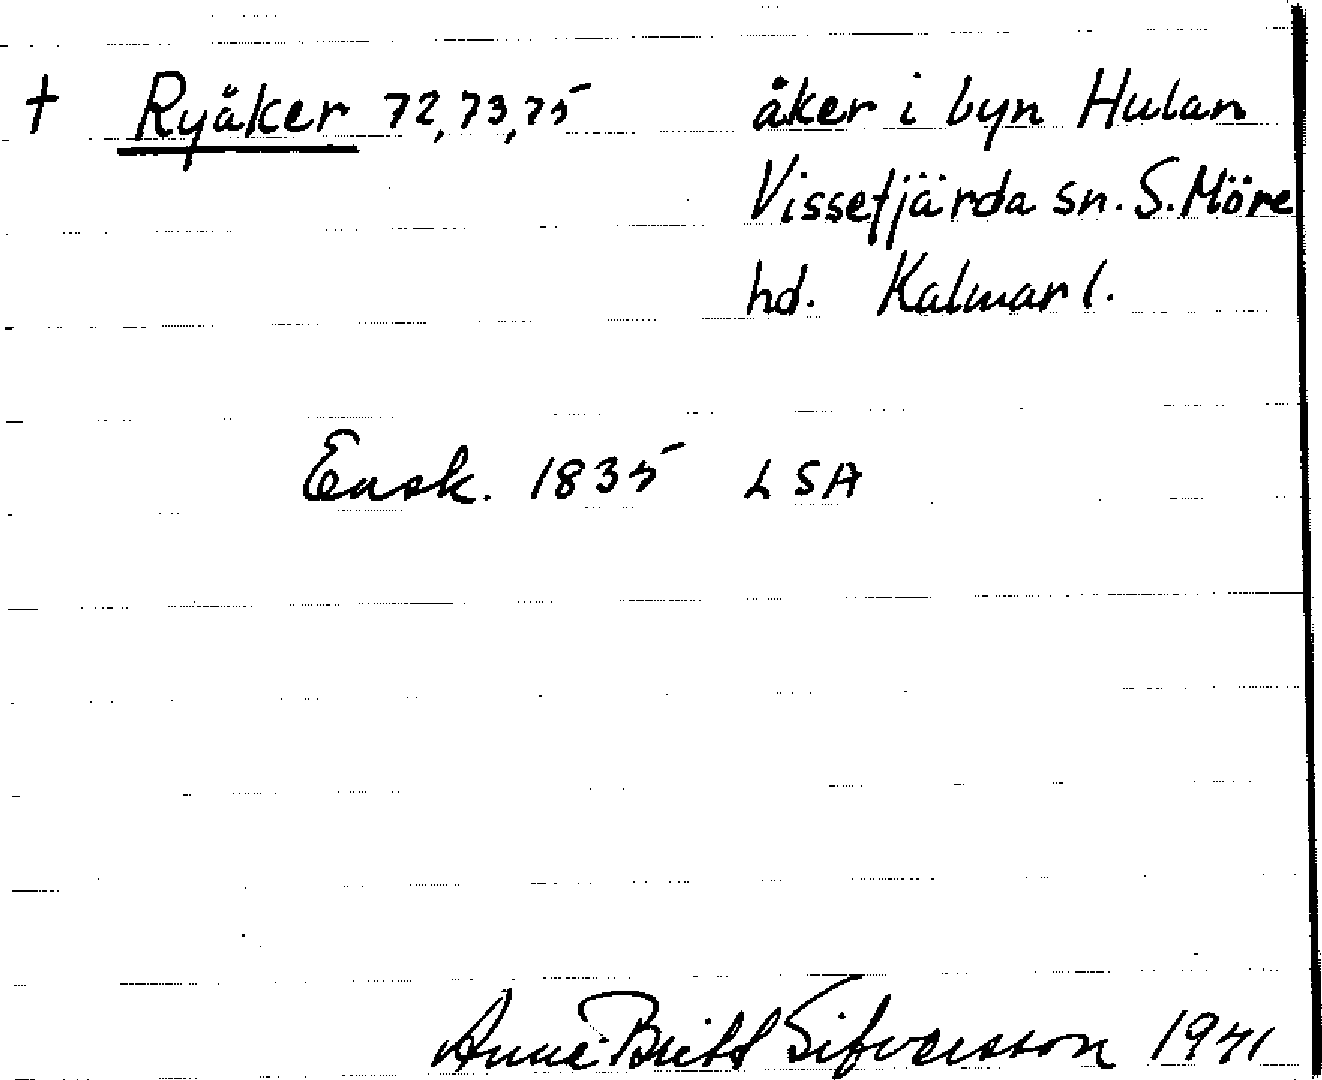 † Ryåker 72, 73, 75 åker i byn Hulan
Vissefjärda sn. S. Möre
hd. Kalmar l.
Ensk. 1835 LSA
Anne-Britt Sifversson 1941